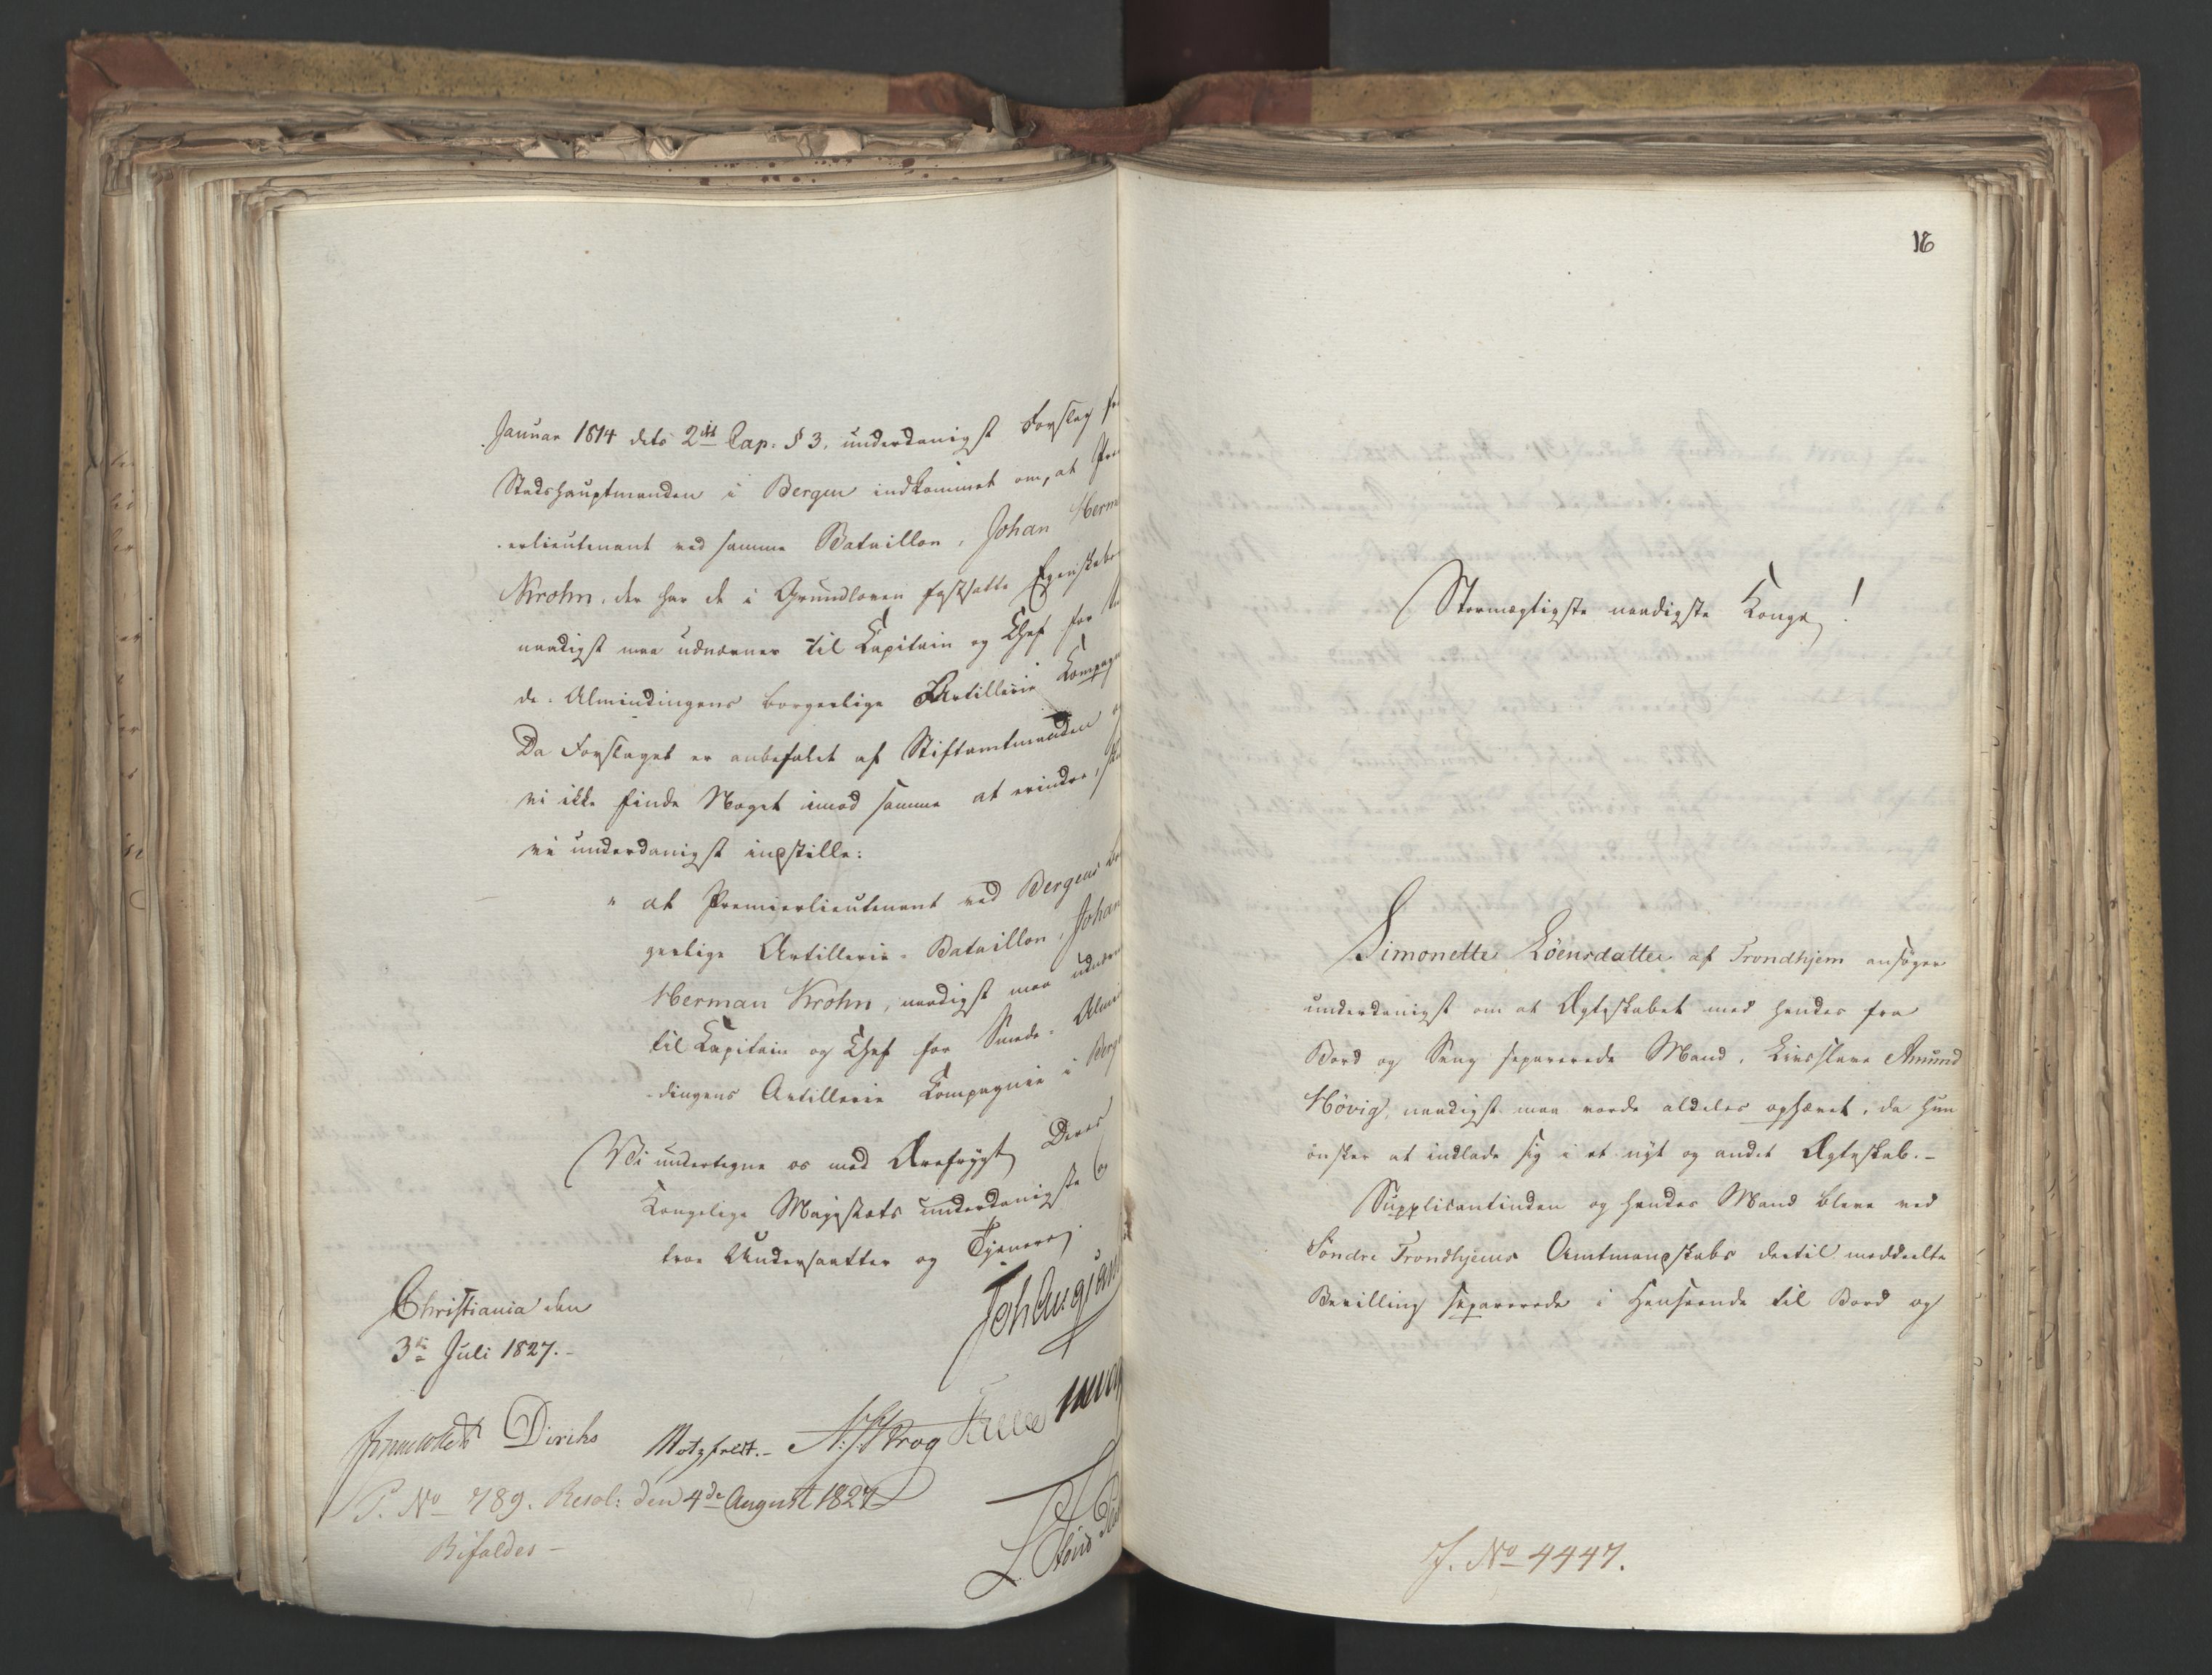 Januar 1814 dets 2det Cap: § 3. underdanigst Forslag fra
Stadshauptmanden i Bergen indkommet om, at Pre
-erlieutenant ved samme Bataillon, Johan Herm
Krohn, der har de i Grundloven fastsatte Egenskaber
naadigst maa udnævnes til Kapitain og Chef for
de-Almindingens borgerlige Artillerie Kompagn
Da Forslaget er anbefalet af Stiftamtmanden og
vi ikke finde Noget imod samme at erindre, skulle
vi underdanigst indstille:
" at Premierlieutenant ved Bergens bor
gerlige Artillerie-Bataillon, Johan
Herman Krohn, naadigst maa udnævn
til Kapitain og Chef for Smede-Almin
-dingens Artillerie Kompagnie i Berg
Vi undertegne os med Ærefrygt Deres
Kongelige Majestæts underdanigste og
troe Undersaatter og Tjenere
Christiania den
3die Juli 1827.-
Diriks Motzfeldt.- Krog
P. No 789. Resol: den 4de August 1827
Bifaldes -
16
Stormægtigste naadigste Konge!
Simonette Löensdatter af Trondhjem ansøger
underdanigst om at Ægteskabet med hendes fra
Bord og Seng separerede Mand, Livsslave Amund
Hövig, naadigst maa vorde aldeles ophævet, da hun
ønsker at indlade sig i et nyt og andet Ægteskab.-
Supplicantinden og hendes Mand bleve ved
Söndre Trondhjems Amtmandskabs dertil meddeelte
Bevilling separerede i Henseende til Bord og
J. No 4447.